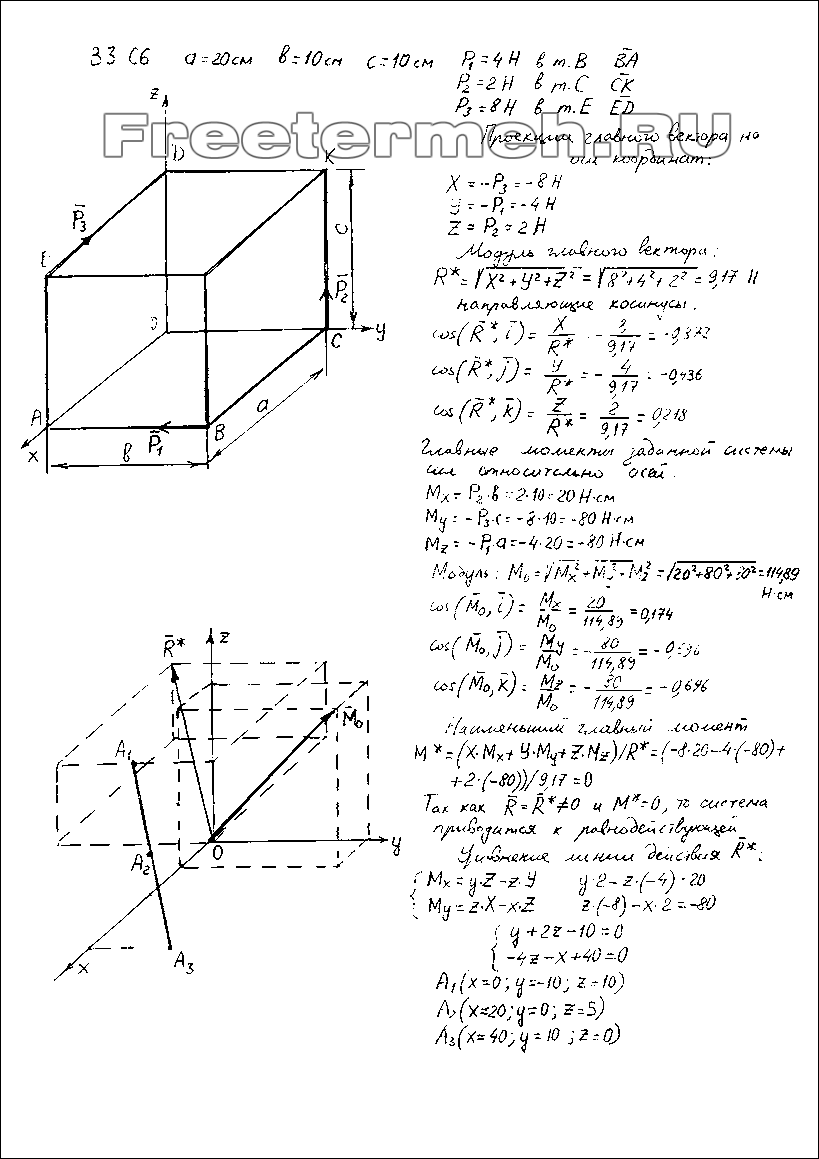 33 С6 a=20см в=10см c=10см P₁=4 Н в т.В B̄A
P₂=2 Н в т.С C̄K
P₃=8 Н в т.Е ĒD
Freetermeh.RU
Проекции главного вектора на
оси координат:
X = -P₃ = -8 Н
У = -P₁ = -4 Н
Z = P₂ = 2 Н
Модуль главного вектора:
R* = √X²+У²+Z² = √8²+4²+2² = 9,17 Н
направляющие косинусы.
cos(R̄*, ī) = X/R* = -8/9,17 = -0,872
cos(R̄*, j̄) = У/R* = -4/9,17 = -0,436
cos(R̄*, k̄) = Z/R* = 2/9,17 = 0,218
Главные моменты заданной системы
сил относительно осей.
Mx = P₂·в = 2·10 = 20 Н·см
My = -P₃·c = -8·10 = -80 Н·см
Mz = -P₁·a = -4·20 = -80 Н·см
Модуль: M₀ = √Mx²+My²+Mz² = √20²+80²+80² = 114,89
Н·см
cos(M̄₀, ī) = Mx/M₀ = 20/114,89 = 0,174
cos(M̄₀, j̄) = My/M₀ = -80/114,89 = -0,696
cos(M̄₀, k̄) = Mz/M₀ = -80/114,89 = -0,696
Наименьший главный момент
M* = (X·Mx + У·My + Z·Mz)/R* = (-8·20-4·(-80)+
+2·(-80))/9,17 = 0
Так как R̄=R̄*≠0 и M*=0, то система
приводится к равнодействующей
Уравнение линии действия R̄*:
{ Mx = y·Z - z·У y·2 - z·(-4) = 20
My = z·X - x·Z z·(-8) - x·2 = -80
{ y+2z-10=0
-4z-x+40=0
A₁(x=0; y=-10; z=10)
A₂(x=20; y=0; z=5)
A₃(x=40; y=10; z=0)
z
D
K
P̄₃
E
c
P̄₂
O
y
C
A
a
B
P̄₁
x
в
R̄*
z
M̄₀
A₁
A₂
O
y
x
A₃